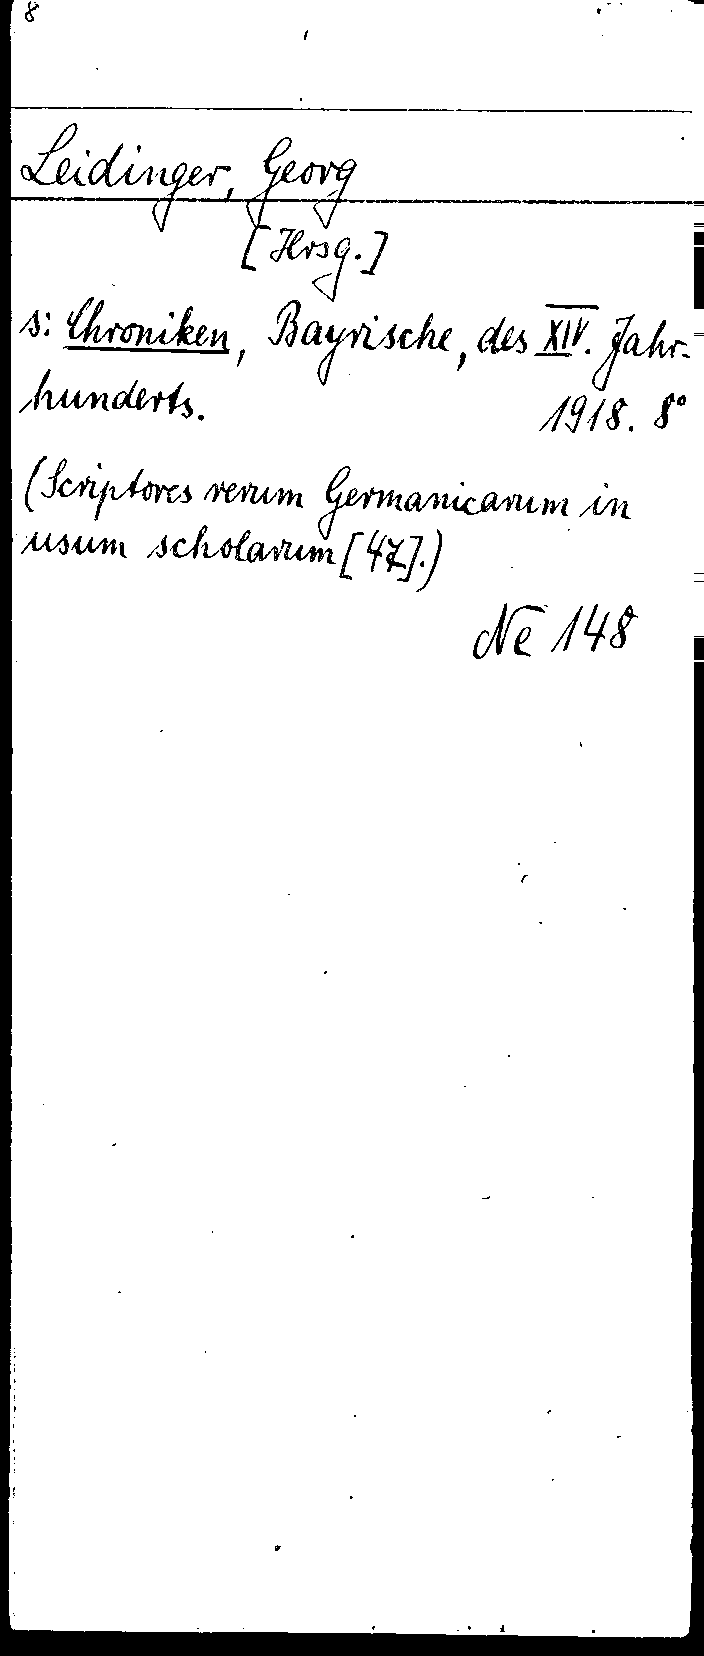 8
Leidinger, Georg
[Hrsg.]
s: Chroniken, Bayrische, des XIV. Jahr-
hunderts. 1918. 8°
(Scriptores rerum Germanicarum in
usum scholarum [47].)
Ne 148